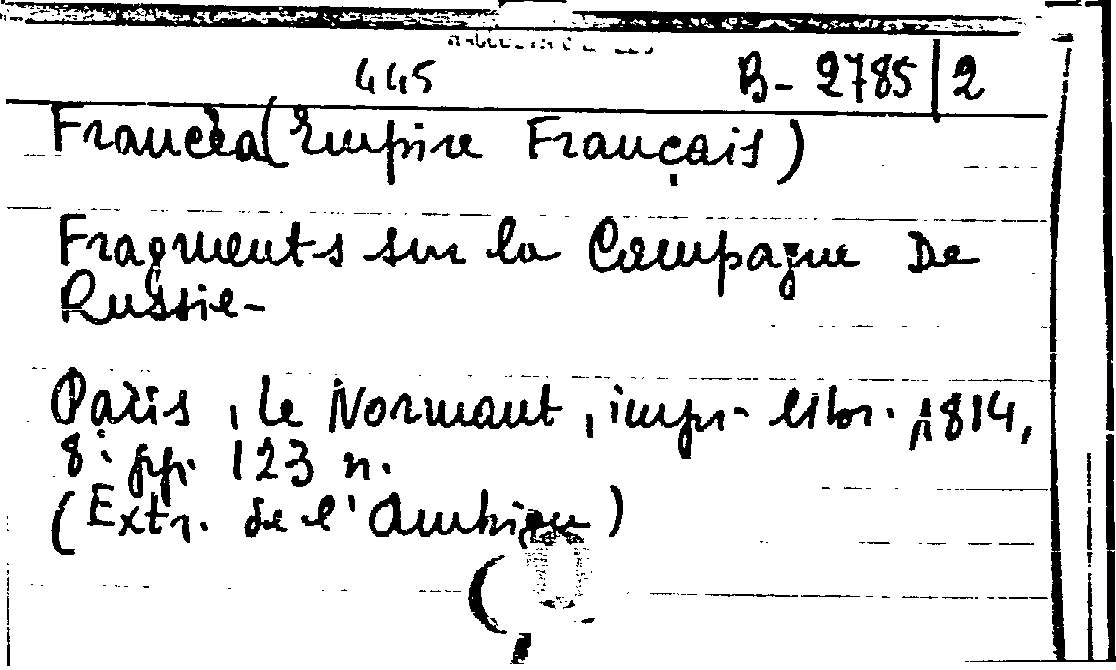 445 B-2785|2
Francia (Empire Français)
Fragments sur la Campagne De
Russie-
Paris, le Normant, impr- libr. 1814,
8° pp. 123 n.
(Extr. de l'Ambigu)